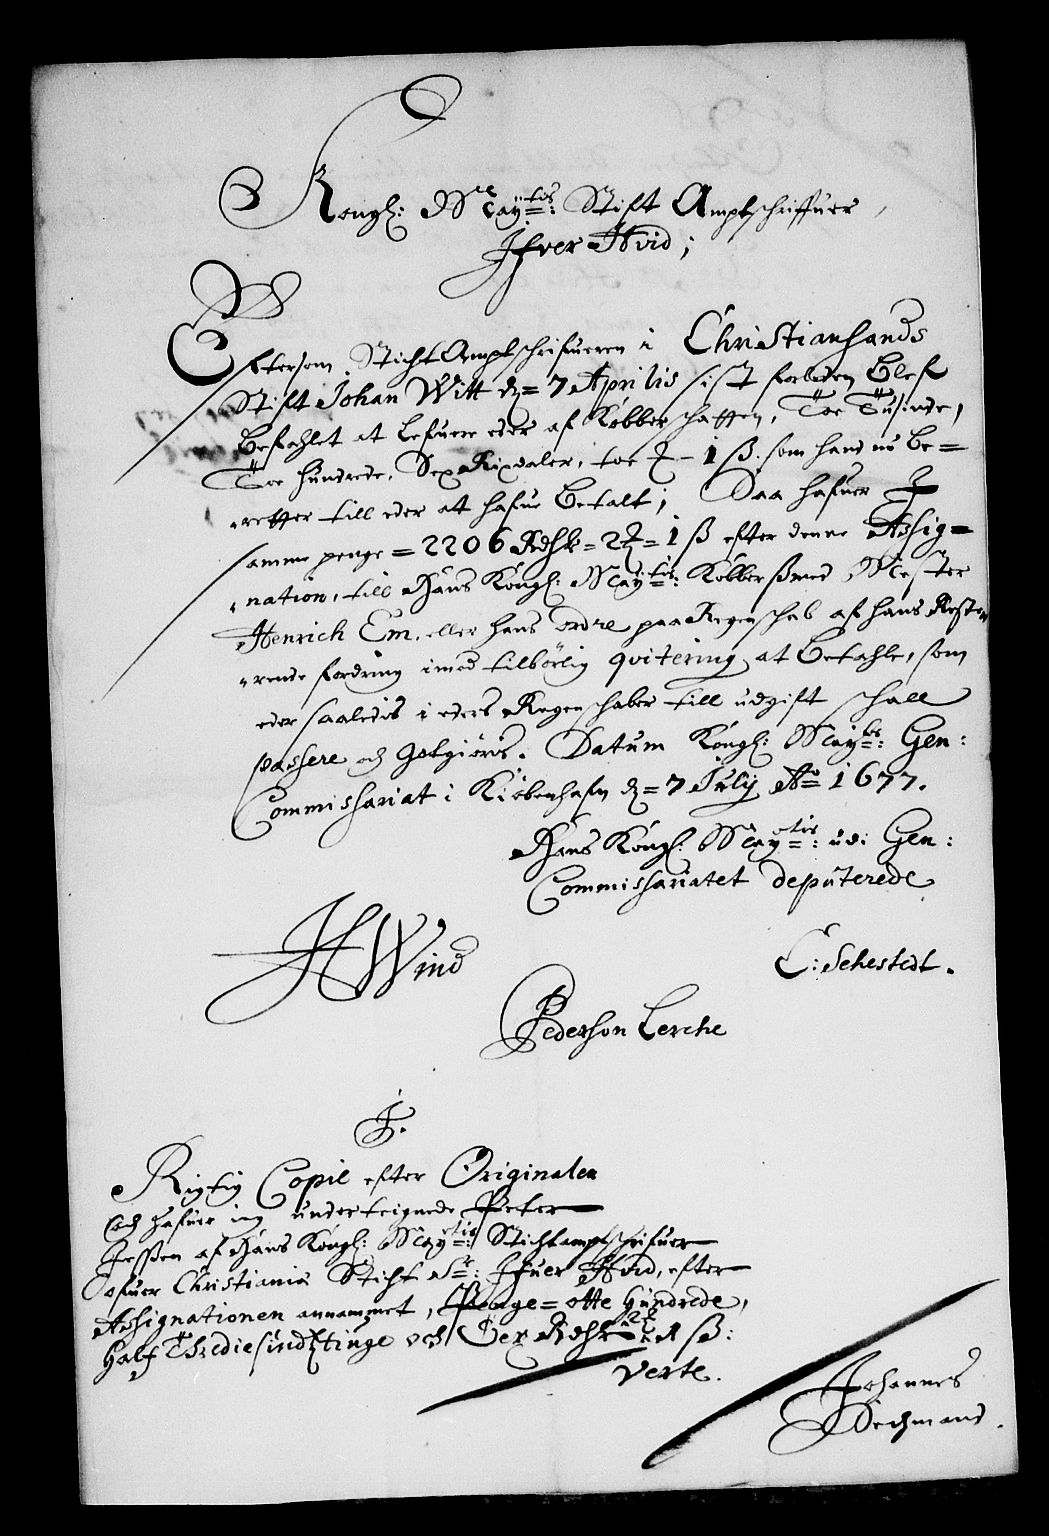 Kongl: Maytis: Stift Amptschriffuer,
Ifver Hvid;
Eftersom Sticht Amptschrifueren i Christiansands
Stift Johan Witt d= 7 Aprilis sist forleden blef
befahlet at lefuere eder af Kobber schatten, Toe Tusinde,
Toe hundrede, Sex Rixdaler, toe β – 1 β. som hand nu be=
retter till eder at hafue betalt; Daa hafuer I
samme penge = 2206 Rdhlr = 2 β = 1 β efter denne Assig=
nation, till Hans Kongl: Maytis: Kobbersmed Mester
Henrich Em, eller hans ordre paa Regenschab af hans Reste=
rende fordring imod tilbörlig qvitering at betahle, som
eder saaledis i eders Regenschaber till udgift schall
passere och gotgiöris. Datum Kongl: Mayts: Gen:
Commissariat i Kiöbenhafn d= 7 July Ao 1677.
Hans Kongl: Maytis: udi Gen:
Commissariatet deputerede
H Wind
C: Sehestedt.
Pederson Lerche
Rigtig Copie efter Originalen
och hafuer ieg underteignede Peter
Jessen af Hans Kongl: Maytis: Stichtamptschrifuer
ofuer Christianiæ Sticht Sr: Ifuer Hvid, efter
Assignationen annammet, Penge = otte hundrede,
half Thrediesindztiuge och Sex Rdhlr 2 β: 1 β:
verte.
Johannes
Dechmand.